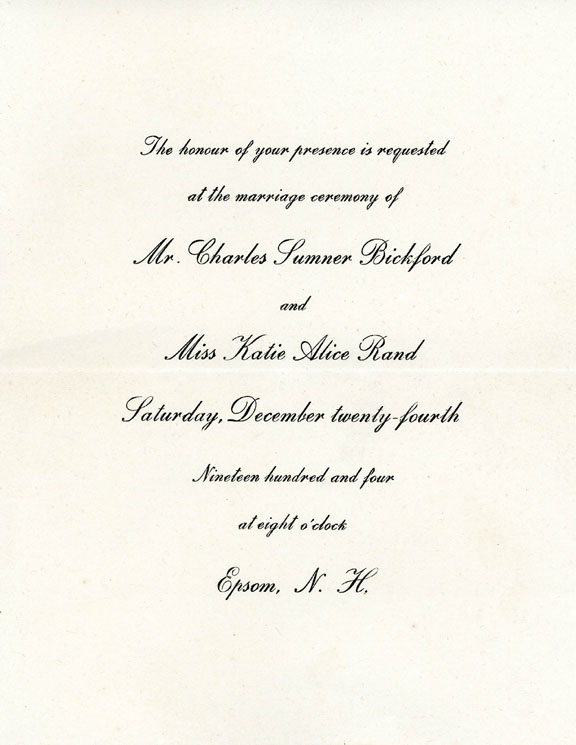 The honour of your presence is requested
at the marriage ceremony of
Mr. Charles Sumner Bickford
and
Miss Katie Alice Rand
Saturday, December twenty-fourth
Nineteen hundred and four
at eight o'clock
Epsom, N. H.